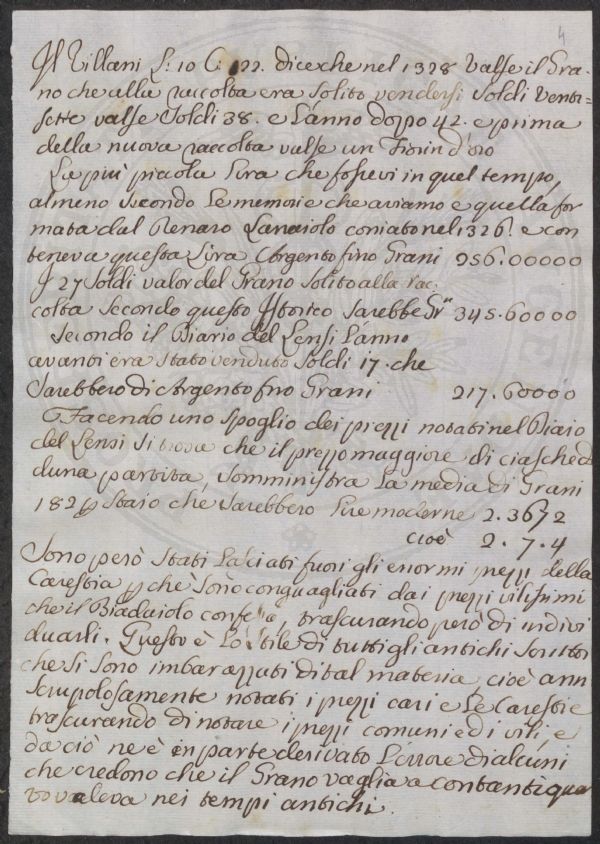 4
Il Villani L: 10 C: 122. dice che nel 1328 valse il Gra=
no che alla raccolta era solito vendersi soldi venti=
sette valse Soldi 38. e l'anno dopo 42. e prima
della nuova raccolta valse un Fiorin d'oro
La più picola Lira che fosse vi in quel tempo,
almeno secondo le memorie che aviamo e quella for
mata dal Denaro Lanaiolo coniato nel 1326. e con
teneva questa Lira Argento fino Grani 256.00000
I 27 Soldi valor del Grano solito alla rac=
colta secondo questo Istorico sarebbe Gr.ni 345.60000
Secondo il Diario del Lensi l'anno
avanti era stato venduto soldi 17. che
sarebbero di Argento fino Grani 217.60000
Facendo uno spoglio dei prezzi notati nel Diaio
del Lensi si trova che il prezzo maggiore di ciasched
duna partita, somministra la media di Grani
182 p Staio che sarebbero Lire moderne 2.3672
cioè 2.7.4
Sono però stati lasciati fuori gli enormi prezzi della
Carestia p che sono conguagliati dai prezzi vilissimi
che il Biadaiolo confessa, trascurando però di indivi
duarli. Questo è lo stile di tutti gli antichi scrittori
che si sono imbarazzati di tal materia, cioè ann
scrupolosamente notati i prezzi cari e le Carestie
trascurando di notare i prezzi comuni ed i vili, e
da ciò ne è in parte derivato l'errore di alcuni
che credono che il Grano vaglia a contanti quan
to valeva nei tempi antichi.